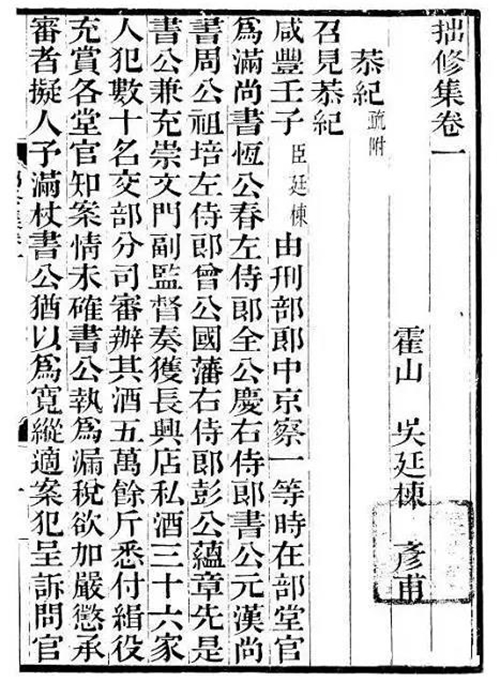 拙修集卷一
霍山 吳廷棟 彥甫
恭紀 疏附
召見恭紀
咸豐壬子臣廷棟由刑部郎中京察一等時在部堂官
爲滿尚書恆公春左侍郎全公慶右侍郎書公元漢尚
書周公祖培左侍郎曾公國藩右侍郎彭公蘊章先是
書公兼充崇文門副監督奏獲長興店私酒三十六家
人犯數十名交部分司審辦其酒五萬餘斤悉付緝役
充賞各堂官知案情未確書公執爲漏稅欲加嚴懲承
審者擬人予滿杖書公猶以爲寬縱適案犯呈訴問官